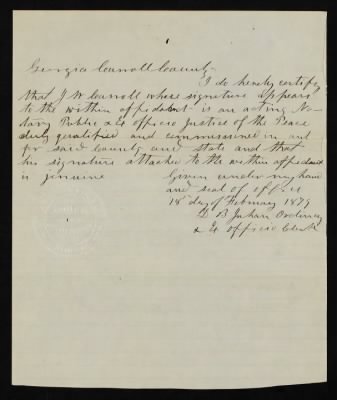 Georgia Carroll County
I do hereby certify
that J W Carroll whose signature appears
to the within affidavit is an acting No-
tary Public & Ex officio Justice of the Peace
duly qualified and commissioned in and
for said County and State and that
his signature attached to the within affidavit
is jenuine Given under my hand
and seal of office
18 day of February 1879
D B Juhan Ordinary
& Ex officio Clerk